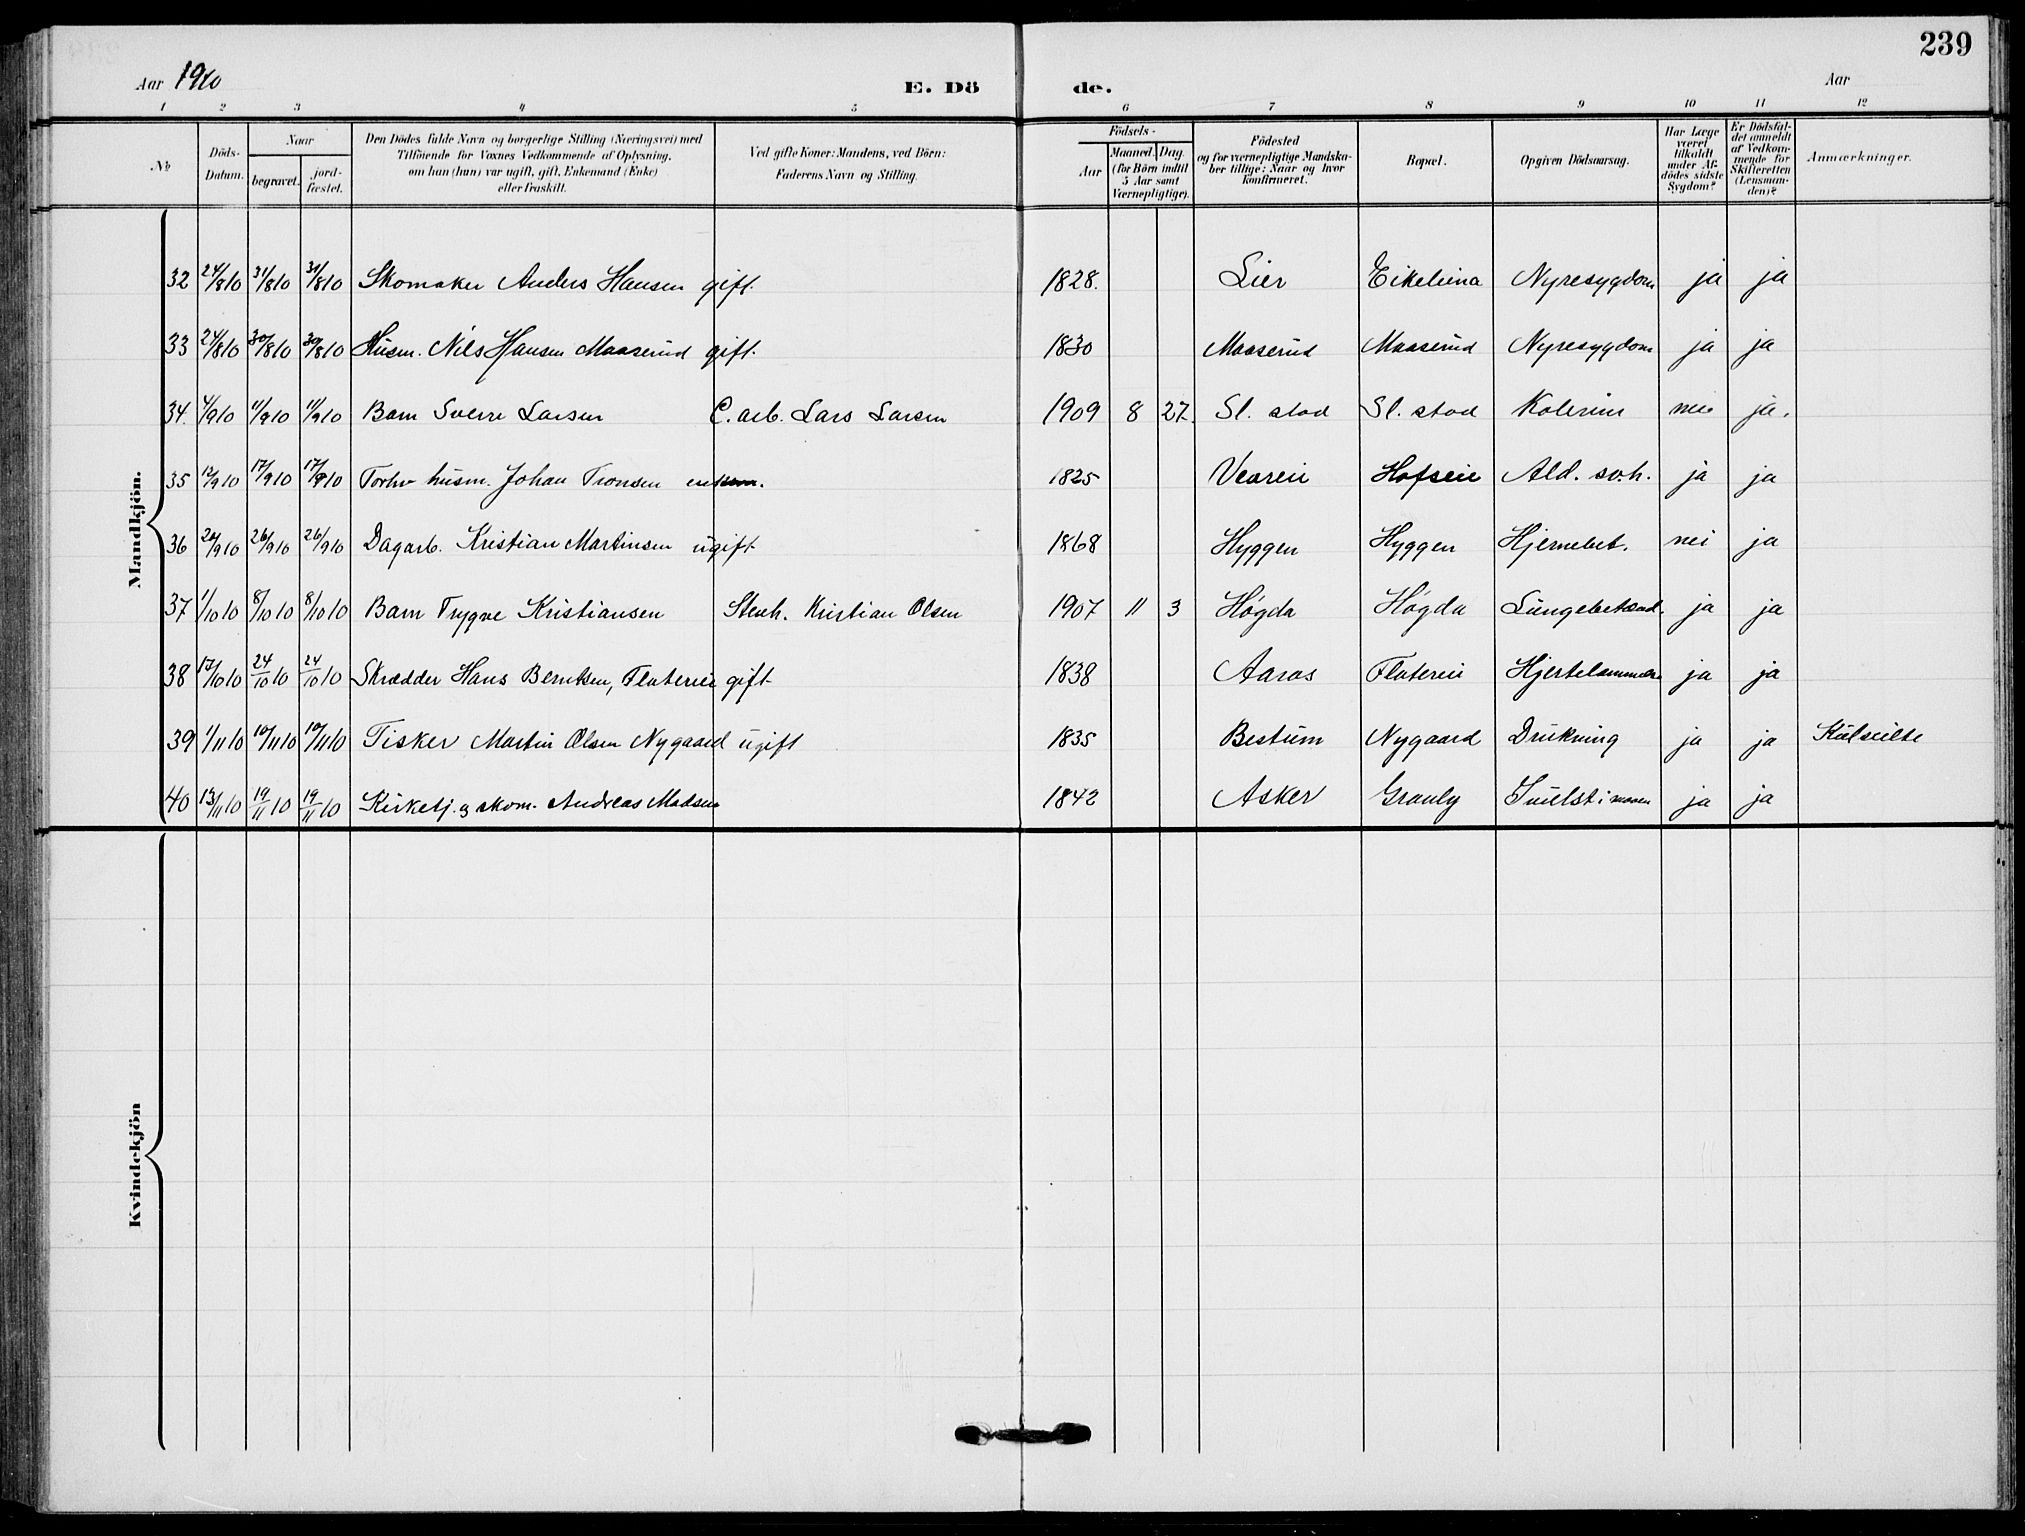 239
Aar 1910 E. Dö de. Aar
1 2 3 4 5 6 7 8 9 10 11 12
№
Döds-Datum.
Naar
begravet.
jord-fæstet.
Den Dödes fulde Navn og borgerlige Stilling (Næringsvei) med
Tilföiende for Voxnes Vedkommende af Oplysning,
om han (hun) var ugift, gift, Enkemand (Enke)
eller fraskilt.
Ved gifte Koner: Mandens, ved Börn:
Faderens Navn og Stilling.
Födsels-
Aar
Maaned. Dag.
(for Börn indtil
5 Aar samt
Værnepligtige).
Födested
og for værnepligtige Mandska-
ber tillige: Naar og hvor
konfirmeret.
Bopæl.
Opgiven Dödsaarsag.
Har Læge
været
tilkaldt
under Af-
dödes sidste
Sygdom?
Er Dödsfal-
det anmeldt
af Vedkom-
mende for
Skifteretten
(Lensman-
den)?
Anmærkninger.
Mandkjön.
32 24/8 10 31/8 10 31/8 10 Skomaker Anders Hansen gift. 1828. Lier Eikeliina Nyresygdom ja ja
33 24/8 10 30/8 10 30/8 10 Husm. Nils Hansen Maaserud gift. 1830 Maaserud Maaserud Nyresygdom ja ja
34. 4/9 10 11/9 10 11/9 10 Barn Sverre Larsen C. arb. Lars Larsen 1909 8 27. Sl. stad Sl. stad Kolerine nei ja.
35 12/9 10 17/9 10 17/9 10 Forhv husm. Johan Tronsen enkem. 1825 Veareie Hofseie Ald. sv.h. ja ja
36 20/9 10 26/9 10 26/9 10 Dagarb. Kristian Martinsen ugift 1868 Hyggen Hyggen Hjernebet. nei ja
37 1/10 10 8/10 10 8/10 10 Barn Trygve Kristiansen Stenh. Kristian Olsen 1907 11 3 Høgda Høgda Lungebetænd. ja ja
38 17/10 10 24/10 10 24/10 10 Skrædder Hans Berntsen, Flatereie gift 1838 Aaros Flatereie Hjertelammelse ja ja
39 1/11 10 10/11 10 10/11 10 Fisker Martin Olsen Nygaard ugift 1835 Bestum Nygaard Drukning ja ja
40 13/11 10 19/11 10 19/11 10 Kirketj. og skom. Andreas Madsen 1842 Asker Granly Svulst i maven ja ja
Kvindekjön